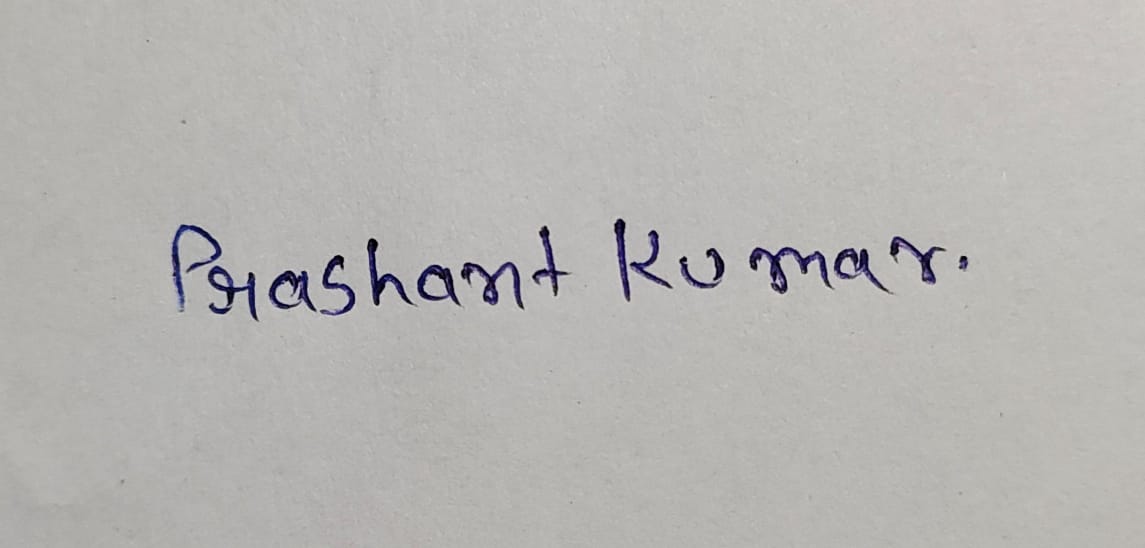 Prashant Kumar.